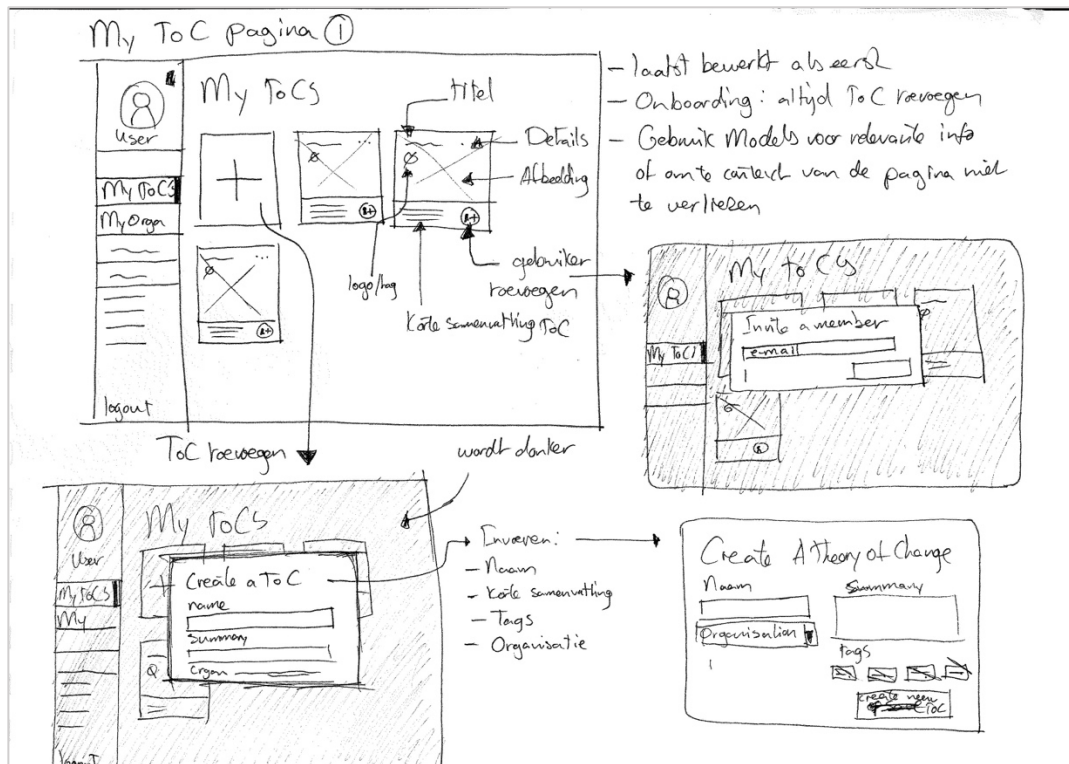 My ToC pagina ①
User
My ToCs
My Organ
logout
My ToCs
titel
Details
Afbeelding
logo/tag
Korte samenvatting ToC
gebruiker
toevoegen
- laatst bewerkt als eerst
- Onboarding: altijd ToC toevoegen
- Gebruik Models voor relevante info
of om te context van de pagina niet
te verliezen
My ToCs
My ToCs
Invite a member
e-mail
ToC toevoegen
wordt donker
User
My ToCs
My
logout
My ToCs
Create a ToC
name
Summary
Organ
Invoeren:
- Naam
- Korte samenvatting
- Tags
- Organisatie
Create A Theory of Change
Naam
Organisation
Summary
tags
create new
ToC